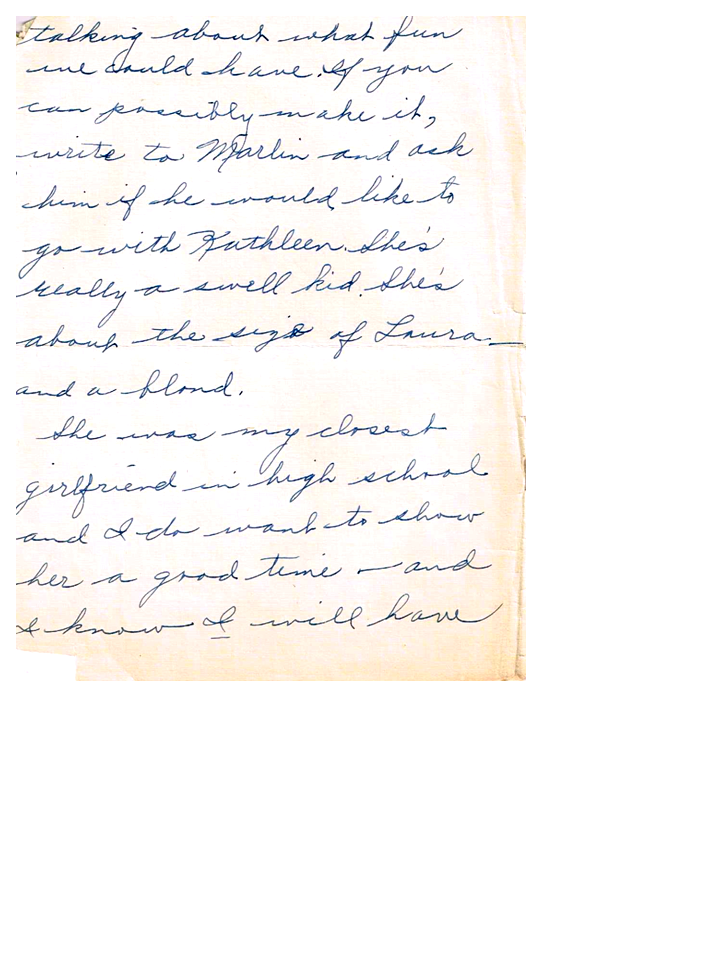 talking about what fun
we could have. If you
can possibly make it,
write to Marlin and ask
him if he would like to
go with Kathleen. She's
really a swell kid. She's
about the size of Laura—
and a blond.
She was my closest
girlfriend in high school
and I do want to show
her a good time — and
I know I will have